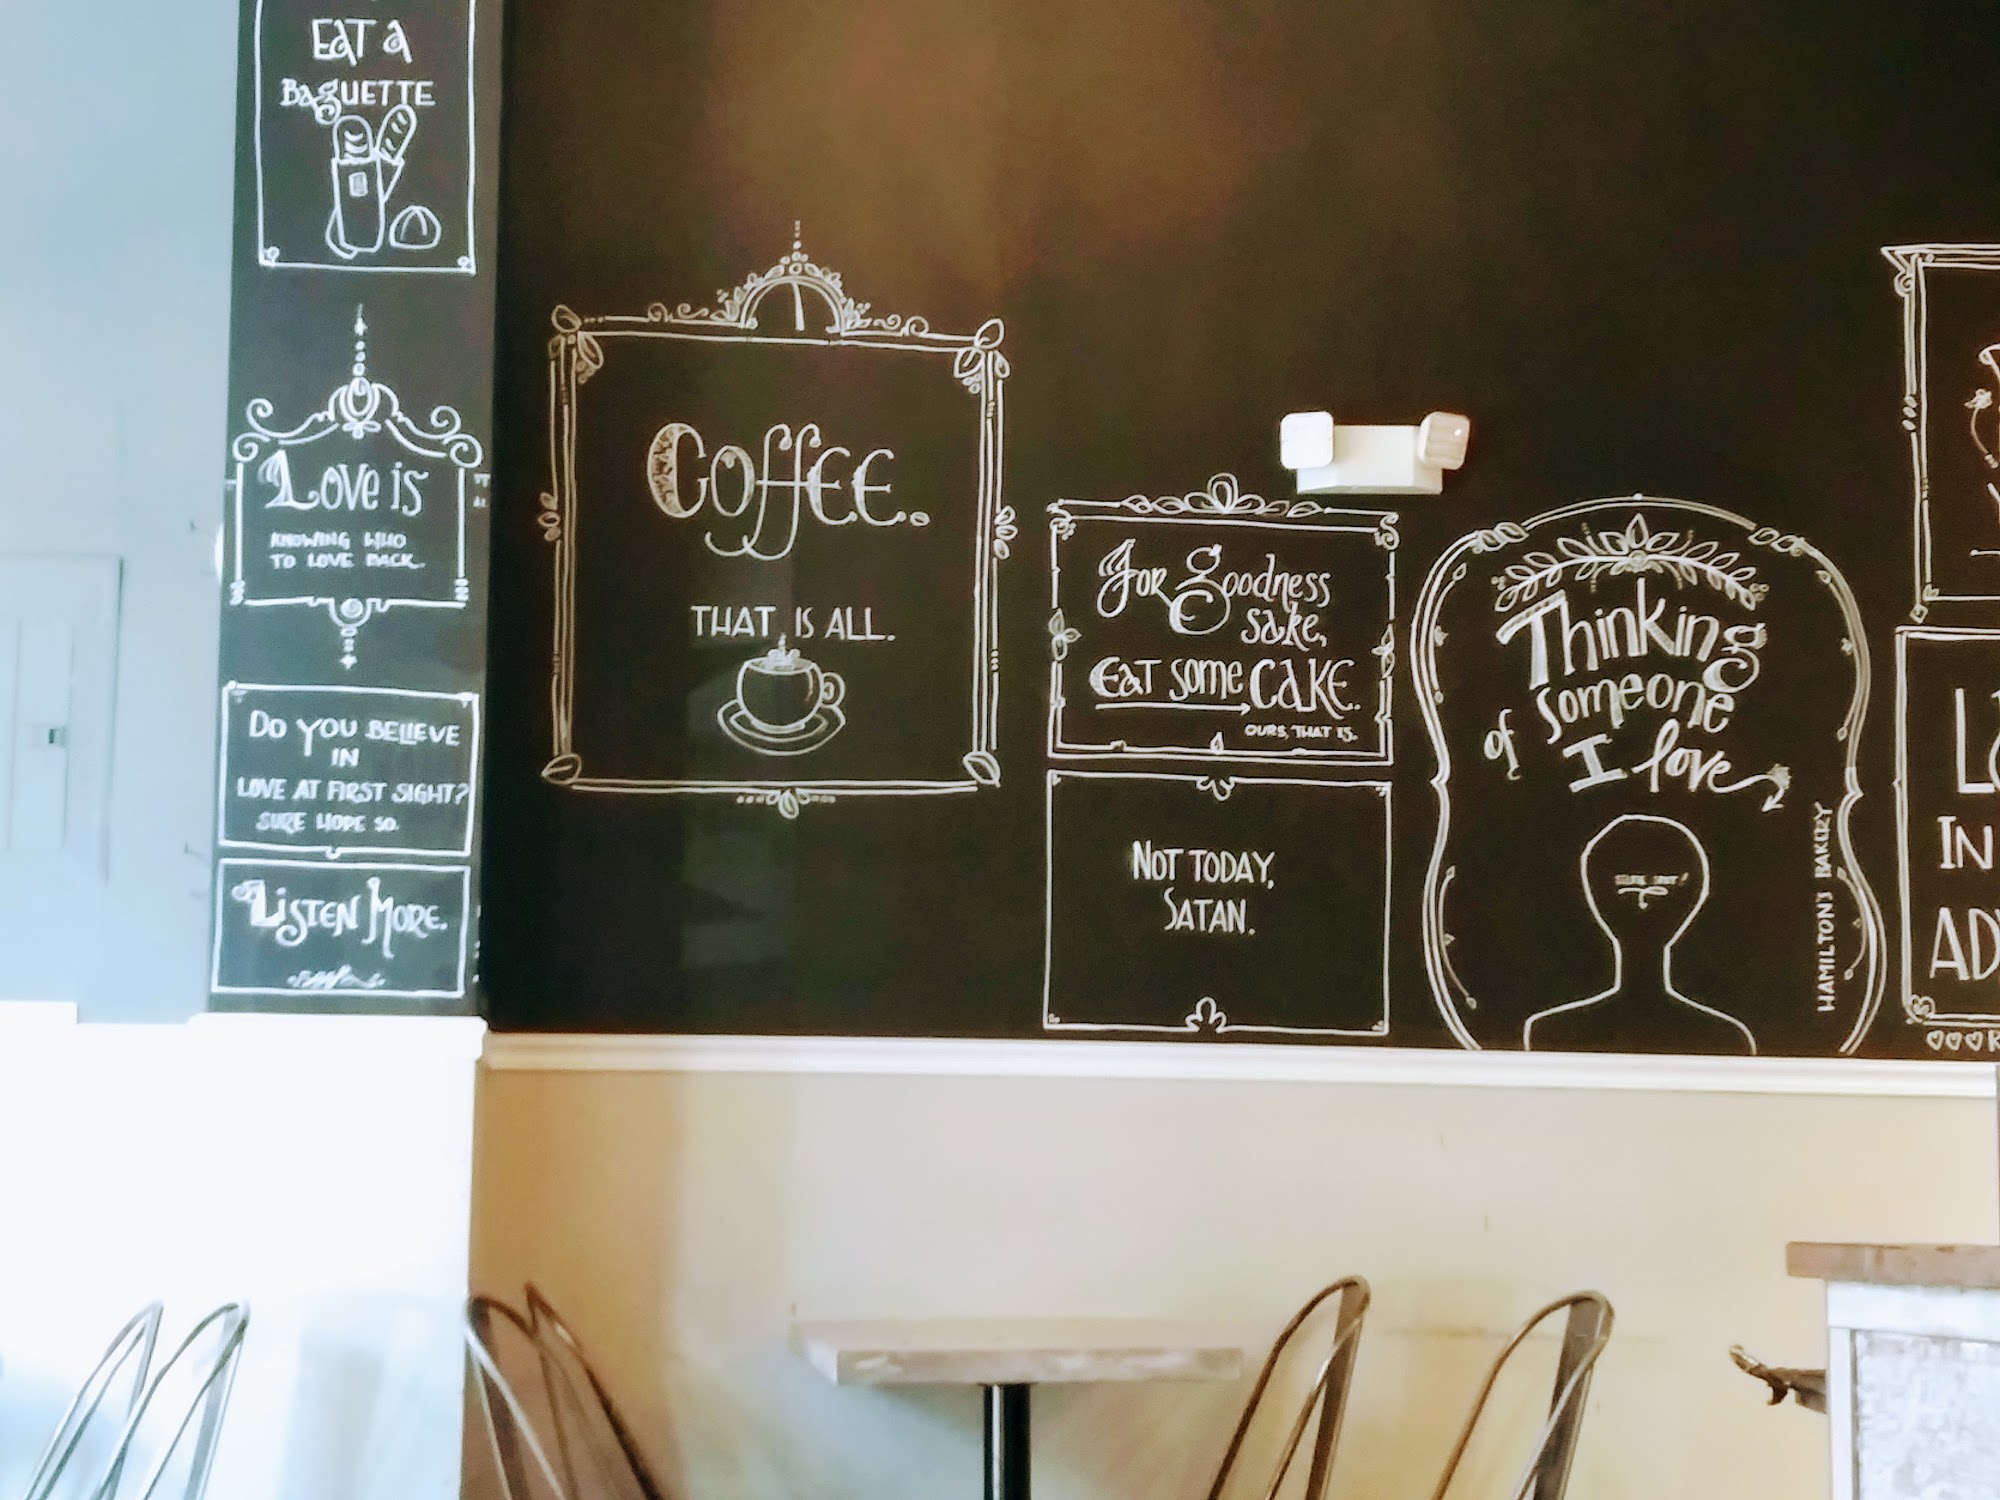 EAT A
BAGUETTE
LOVE IS
KNOWING WHO
TO LOVE BACK.
DO YOU BELIEVE
IN
LOVE AT FIRST SIGHT?
SURE HOPE SO.
LISTEN MORE.
COFFEE.
THAT IS ALL.
For Goodness
sake,
EAT some CAKE.
OURS, THAT IS.
NOT TODAY,
SATAN.
Thinking
of someone
I love
HAMILTON'S BAKERY
IN